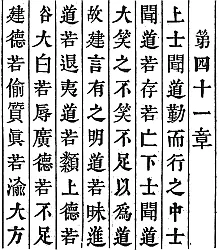 第四十一章
上士聞道勤而行之中士
聞道若存若亡下士聞道
大笑之不笑不足以爲道
故建言有之明道若昧進
道若退夷道若纇上德若
谷大白若辱廣德若不足
建德若偷質眞若渝大方